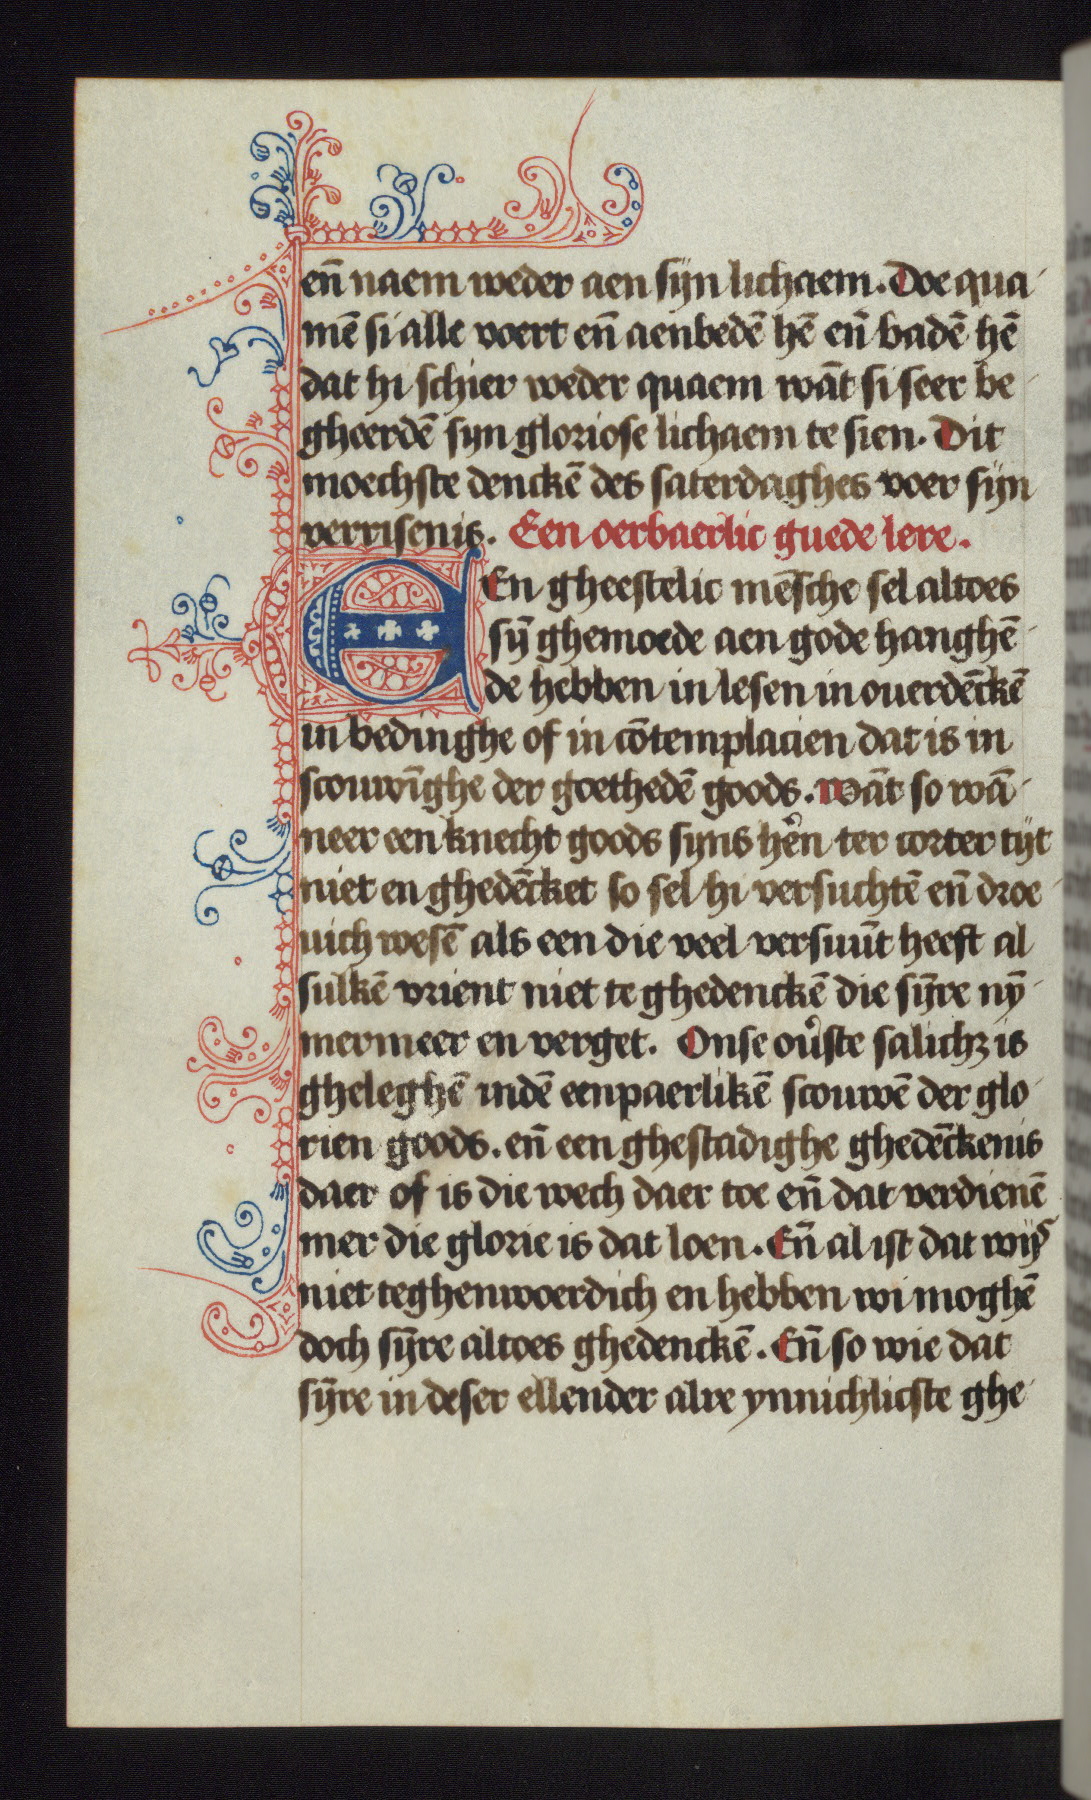 en̄ naem weder aen sijn lichaem. Doe qua
mē si alle voert en̄ aenbedē hē en̄ badē hē
dat hi schier weder quaem wāt si seer be
gheerdē syn gloriose lichaem te sien. Dit
moechste denckē des saterdaghes voer sijn
verrisenis. Een oerbaerlic guede lere.
EEn gheestelic mēsche sel altoes
sȳ ghemoede aen gode hanghē
de hebben in lesen in ouerdēckē
in bedinghe of in cōtemplacien dat is in
scouwīghe der goethedē goods. Wāt so wā
neer een knecht goods syns hēn ter corter tijt
niet en ghedēcket so sel hi versuchtē en̄ droe
uich wesē als een die veel versuūt heeft al
sulkē vrient niet te ghedenckē die sȳre nȳ
mermeer en verget. Onse ou̓ste salichꝫ is
gheleghē indē eenpaerlikē scouwē der glo
rien goods. en̄ een ghestadighe ghedēckenis
daer of is die wech daer toe en̄ dat verdienē
mer die glorie is dat loen. En̄ al ist dat wijs
niet teghenwoerdich en hebben wi moghē
doch sȳre altoes ghedenckē. En̄ so wie dat
sȳre in deser ellender alre ynnichlicste ghe